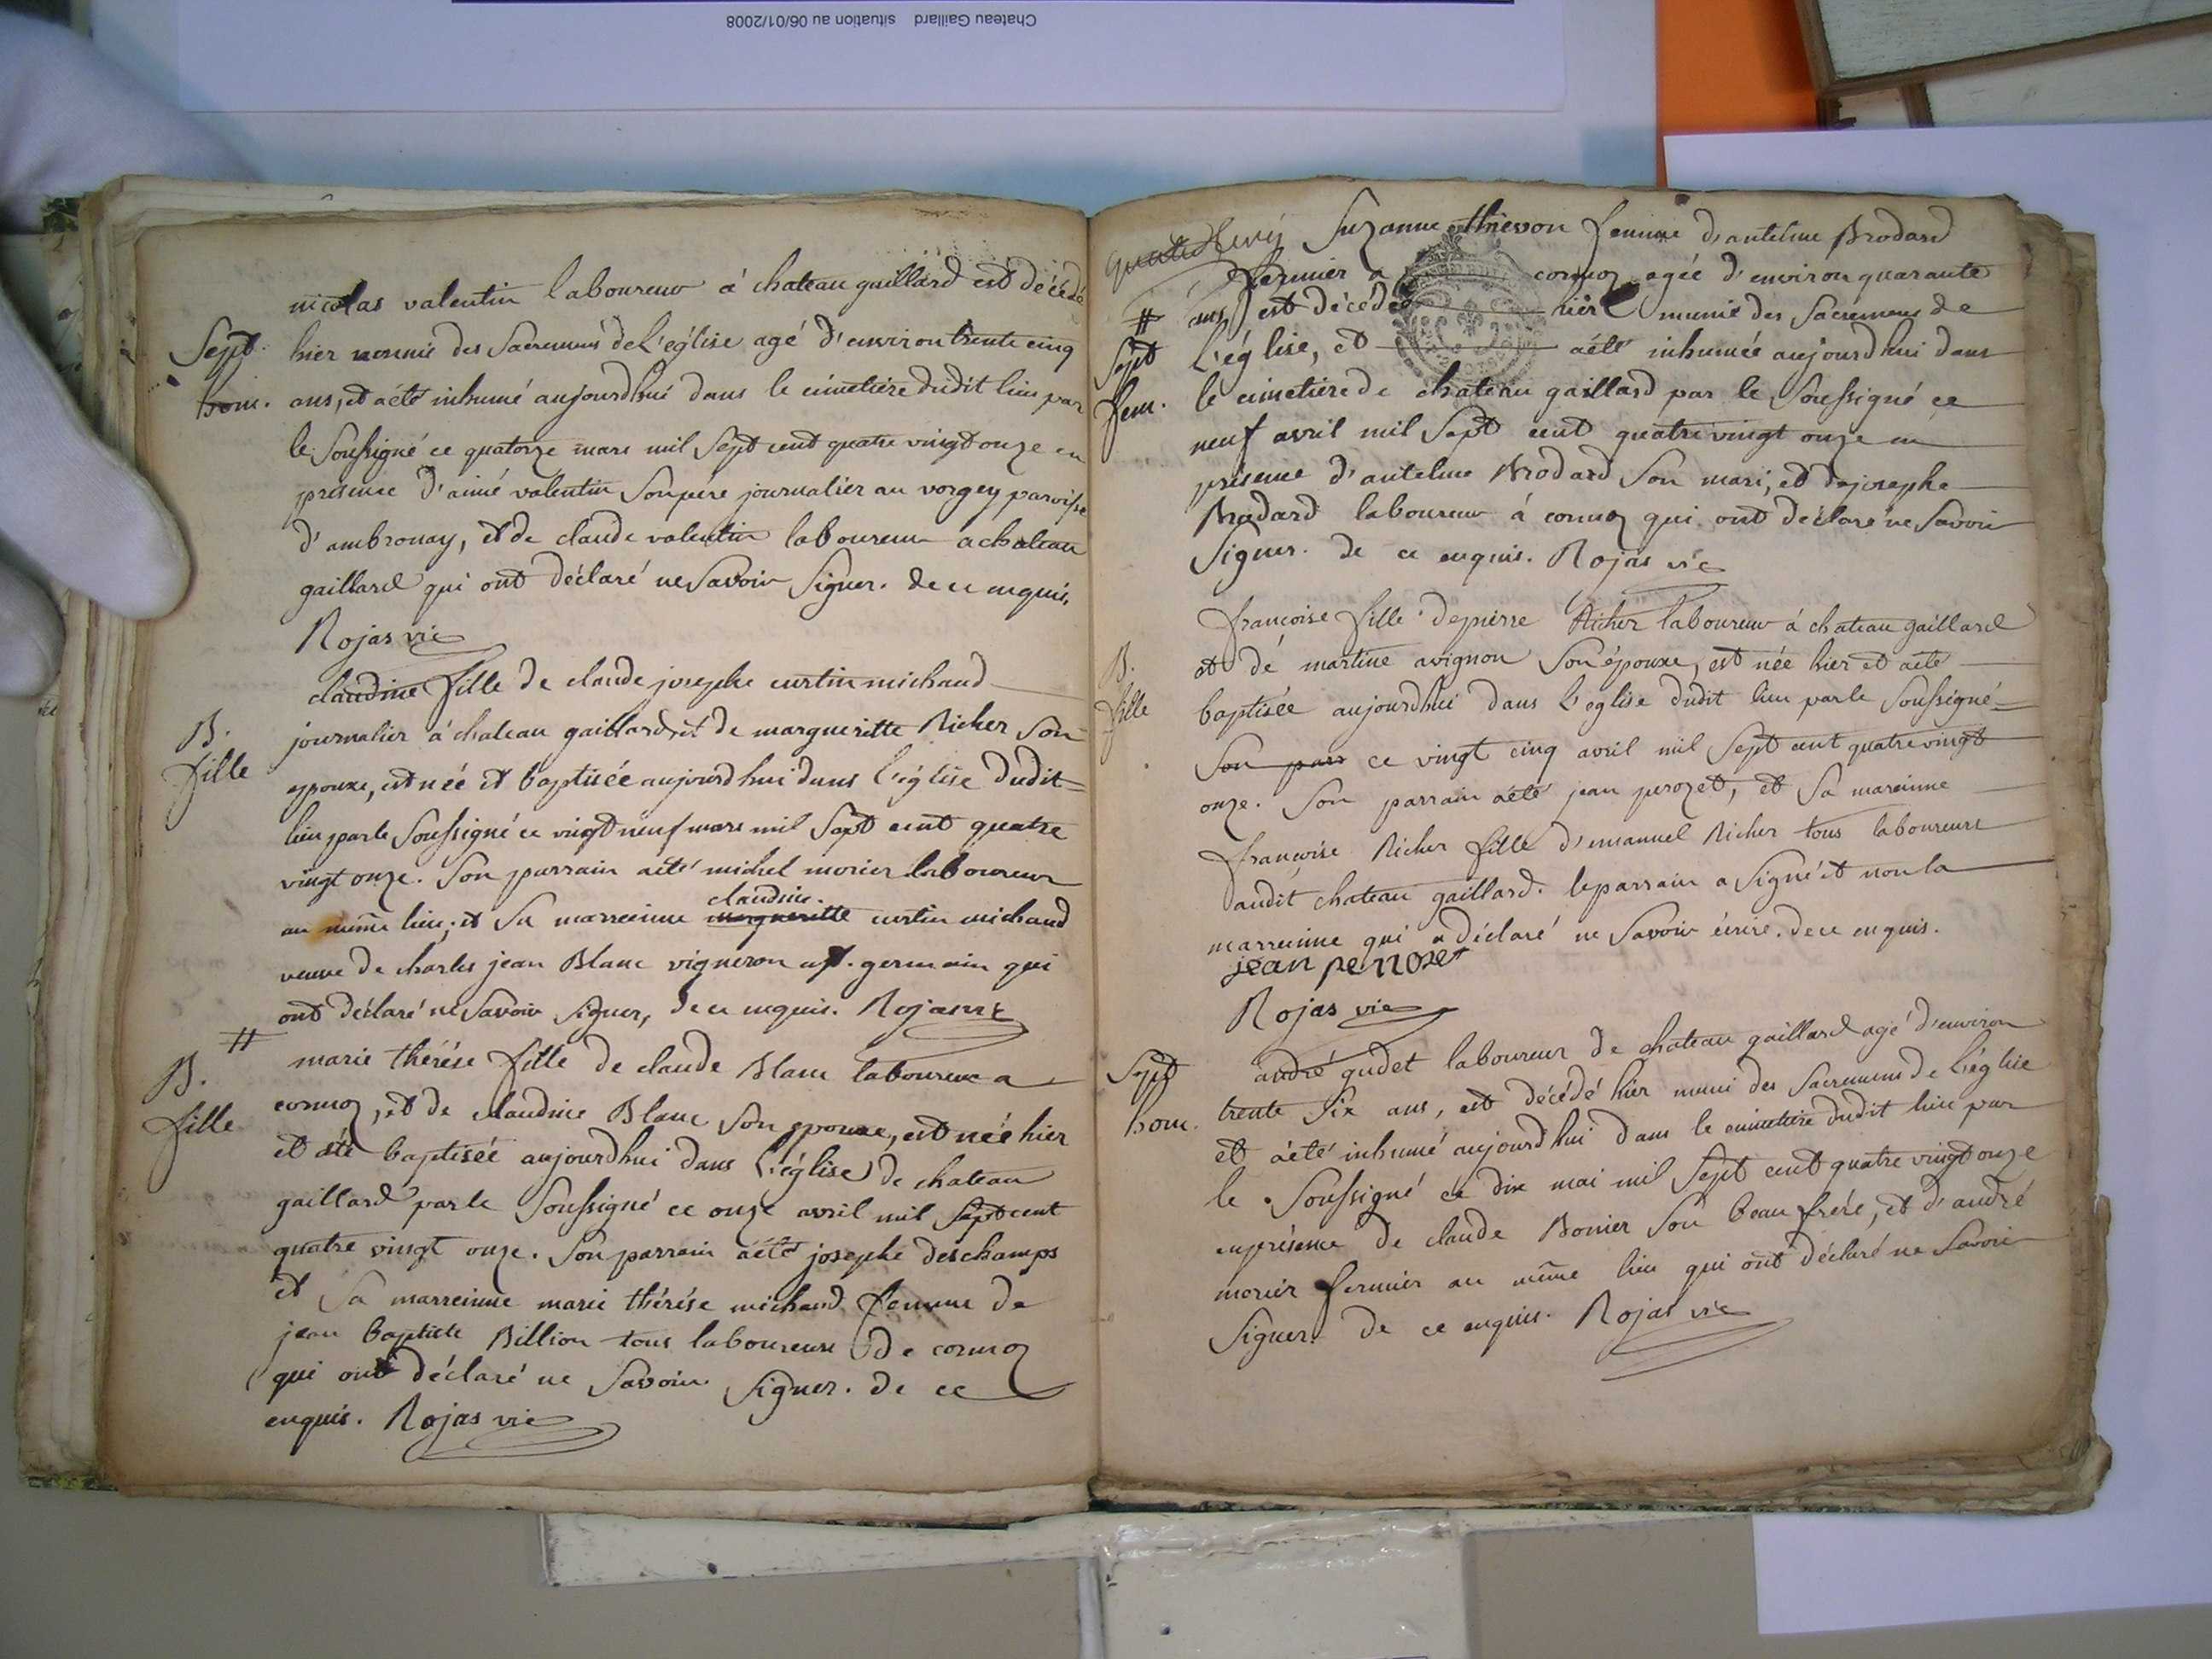 Chateau Gaillard situation au 06/01/2008
nicolas valentin laboureur á chateau gaillard est décédé
Sept. hom.
hier munie des Sacremens de L'église agé d'environ trente cinq
ans, et a été inhumé aujourd'hui dans le cimetiere dudit lieu par
le Soussigné ce quatorze mars mil Sept cent quatre vingt onze en
présence d'aimé valentin Son pére journalier au vorgey paroisse
d'ambronay, et de claude valentin laboureur a chateau
gaillard qui ont déclaré ne Savoir Signer. de ce enquis.
Rojas vic
B. fille
claudine fille de claude josephe curtin michaud
journalier á chateau gaillard, et de margueritte Richer Son
epouxe, est née et baptisée aujourd'hui dans l'église dudit
lieu par le Soussigné ce vingt neuf mars mil Sept cent quatre
vingt onze. Son parrain a été michel morier laboureur
au même lieu; et Sa marreinne margueritte claudine. curtin michaud
veuve de charles jean Blanc vigneron a st. germain qui
ont déclaré ne Savoir Signer, de ce enquis. Rojas vic
#
B. fille
marie thérése fille de claude Blanc laboureur a
cormoz, et de claudine Blanc Son epouxe, est née hier
et a été baptisée aujourd'hui dans l'église de chateau
gaillard par le Soussigné ce onze avril mil Sept cent
quatre vingt onze. Son parrain a été josephe deschamps
et Sa marreinne marie thérése michaud femme de
jean baptiste Billion tous laboureurs de cormoz
qui ont déclaré ne Savoir Signer. de ce
enquis. Rojas vic
Suzanne thievon femme d'antelme Brodard
fermier a cormoz agée d'environ quarante
# Sept fem.
ans est décédée hier munie des Sacremens de
L'église, et a été inhumée aujourd'hui dans
le cimetiere de chateau gaillard par le Soussigné ce
neuf avril mil Sept cent quatre vingt onze en
présence d'antelme Brodard Son mari, et de josephe
Brodard laboureur á cormoz qui ont déclaré ne Savoir
Signer. de ce enquis. Rojas vic
B. fille
françoise fille de pierre Richer laboureur á chateau gaillard
et de martine avignon Son épouxe, est née hier et a été
baptisée aujourd'hui dans l'eglise dudit lieu par le Soussigné
Son parr ce vingt cinq avril mil Sept cent quatre vingt
onze. Son parrain a été jean perozet, et Sa mareinne
françoise Richer fille d'emanuel Richer tous laboureurs
audit chateau gaillard. le parrain a Signé et non la
marreinne qui a déclaré ne Savoir écrire. de ce enquis.
jean perrozet
Rojas vic
Sept hom.
andré gudet laboureur de chateau gaillard agé d'environ
trente Six ans, est décédé hier muni des Sacremens de L'église
et a été inhumé aujourd'hui dans le cimetiere dudit lieu par
le Soussigné ce dix mai mil Sept cent quatre vingt onze
en présence de claude Bonier Son beau frére, et d'andré
morier fermier au même lieu qui ont déclaré ne Savoir
Signer. de ce enquis. Rojas vic